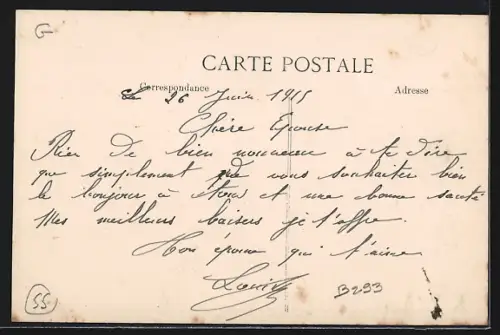 G
CARTE POSTALE
Correspondance
Adresse
Le 26 Juin 1915
Chère Epouse
Rien de bien nouveau à te dire
que simplement de vous souhaiter bien
le bonjour à tous et une bonne santé
Mes meilleurs baisers je t'offre.
Ton époux qui t'aime
Louis
55
B293